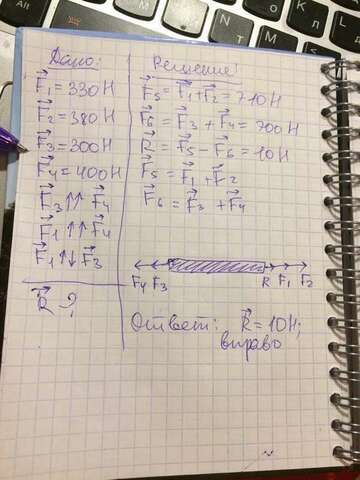 Дано:
F₁ = 330 Н
F₂ = 380 Н
F₃ = 300 Н
F₄ = 400 Н
F₃ ↑↑ F₄
F₁ ↑↑ F₄
F₁ ↑↓ F₃
R - ?
Решение:
F₅ = F₁ + F₂ = 710 Н
F₆ = F₃ + F₄ = 700 Н
R = F₅ - F₆ = 10 Н
F₅ = F₁ + F₂
F₆ = F₃ + F₄
F₄ F₃ R F₁ F₂
Ответ: R = 10 Н;
вправо